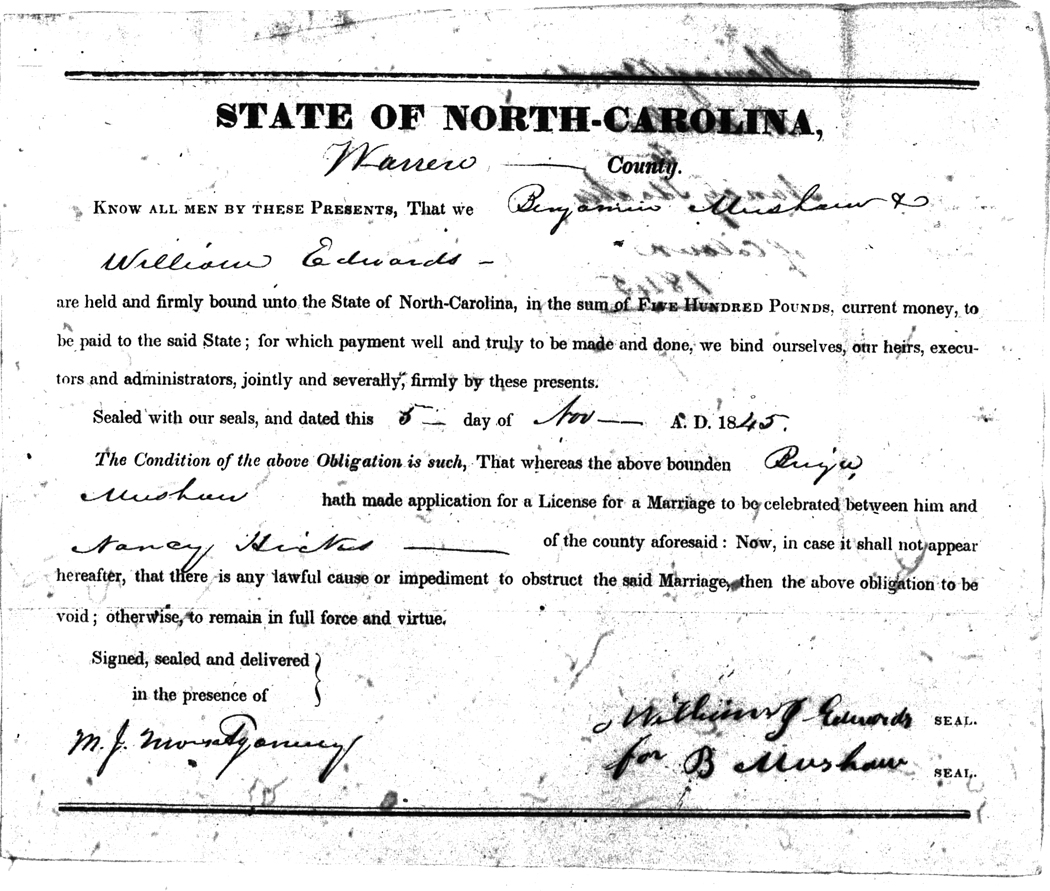 STATE OF NORTH-CAROLINA,
Warren County.
KNOW ALL MEN BY THESE PRESENTS, That we Benjamin Mushaw &
William Edwards -
are held and firmly bound unto the State of North-Carolina, in the sum of FIVE HUNDRED POUNDS, current money, to
be paid to the said State; for which payment well and truly to be made and done, we bind ourselves, our heirs, execu-
tors and administrators, jointly and severally, firmly by these presents.
Sealed with our seals, and dated this 5 — day of Nov — A. D. 1845.
The Condition of the above Obligation is such, That whereas the above bounden Benja
Mushaw hath made application for a License for a Marriage to be celebrated between him and
Nancy Hicks — of the county aforesaid: Now, in case it shall not appear
hereafter, that there is any lawful cause or impediment to obstruct the said Marriage, then the above obligation to be
void; otherwise, to remain in full force and virtue.
Signed, sealed and delivered
in the presence of
M. J. Montgomery
William J Edwards SEAL.
for B Mushaw SEAL.